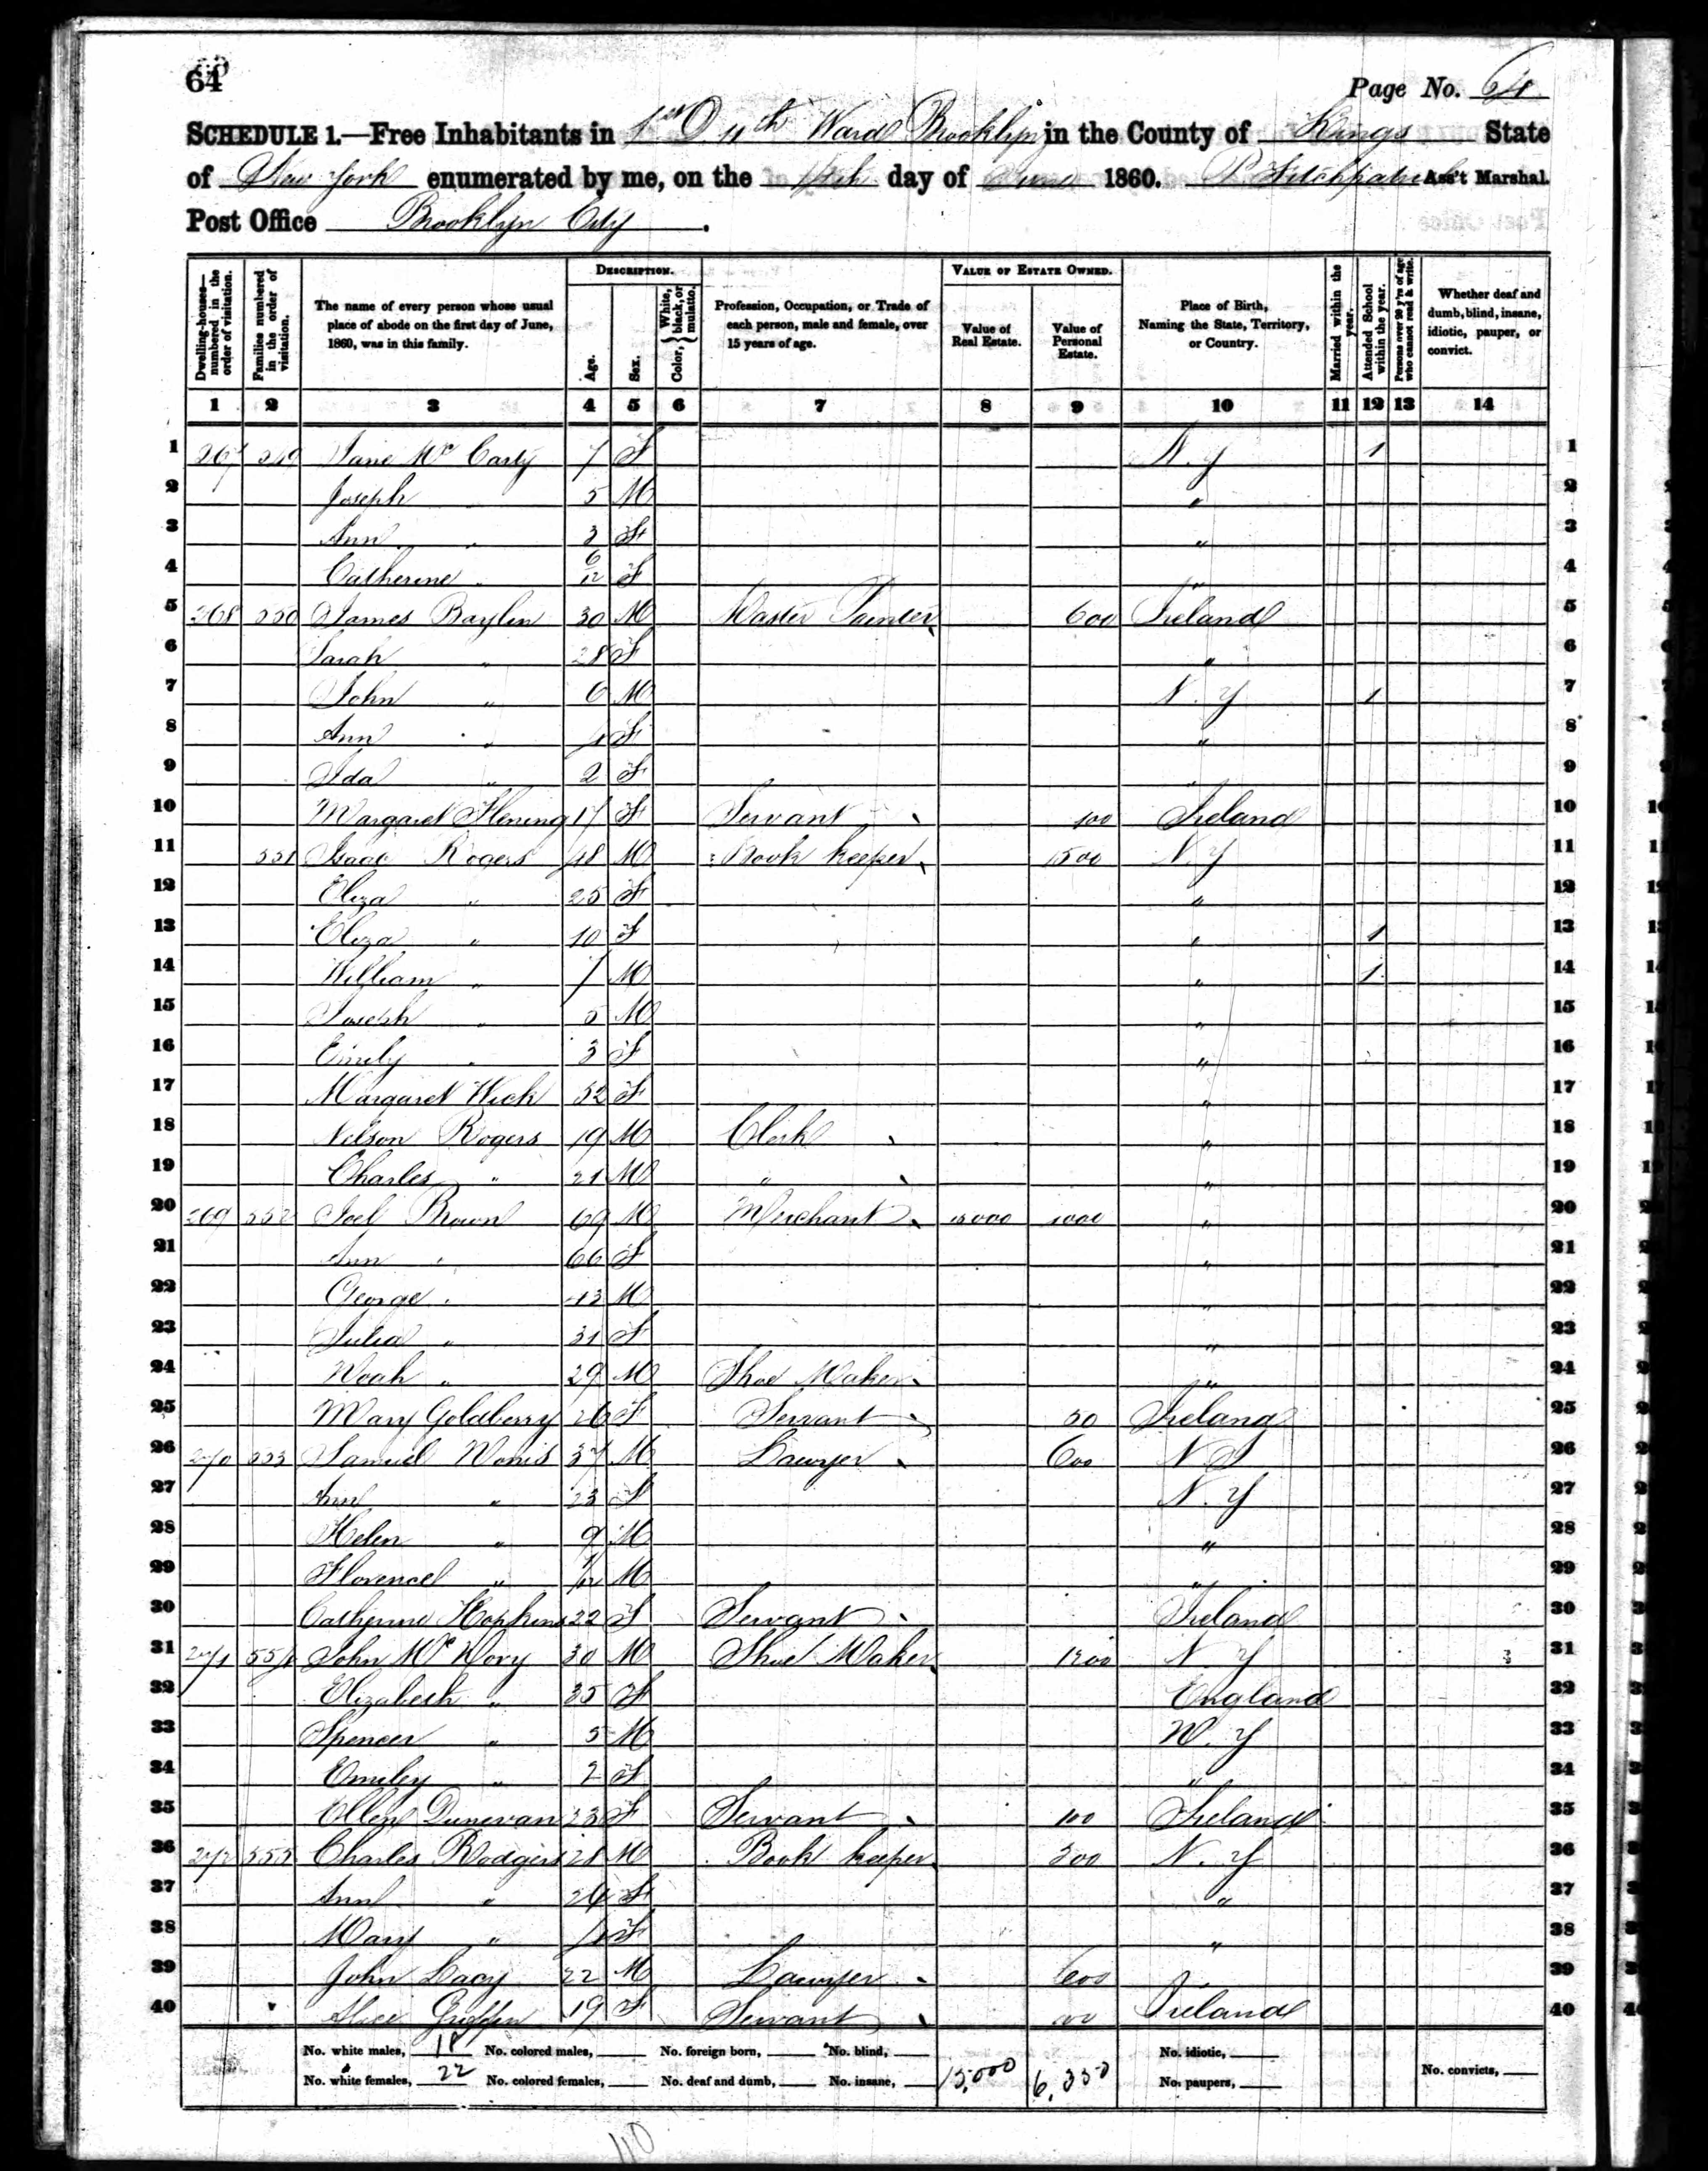 64
Page No. 64
SCHEDULE 1.—Free Inhabitants in 1st D. 11th Ward Brooklyn in the County of Kings State
of New York enumerated by me, on the day of June 1860. Ass't Marshal.
Post Office Brooklyn City .
DESCRIPTION. VALUE OF ESTATE OWNED.
Dwelling-houses—numbered in the order of visitation. Families numbered in the order of visitation. The name of every person whose usual place of abode on the first day of June, 1860, was in this family. Age. Sex. Color, {White, black, or mulatto. Profession, Occupation, or Trade of each person, male and female, over 15 years of age. Value of Real Estate. Value of Personal Estate. Place of Birth, Naming the State, Territory, or Country. Married within the year. Attended School within the year. Persons over 20 y'rs of age who cannot read & write. Whether deaf and dumb, blind, insane, idiotic, pauper, or convict.
1 2 3 4 5 6 7 8 9 10 11 12 13 14
1 267 Jane Mc Carty 7 F N. Y 1 1
2 Joseph " 5 M " 2
3 Ann " 3 F " 3
4 Catherine " 6/12 F " 4
5 268 550 James Baylin 30 M Master Painter 600 Ireland 5
6 Sarah " 28 F " 6
7 John " 6 M N. Y 1 7
8 Ann " 4 F " 8
9 Ida " 2 F " 9
10 Margaret Flening 17 F Servant 100 Ireland 10
11 551 Isaac Rogers 48 M Book keeper 1500 N. Y 11
12 Eliza " 25 F " 12
13 Eliza " 10 F " 1 13
14 William " 7 M " 1 14
15 Joseph " 5 M " 15
16 Emely " 3 F " 16
17 Margaret Wick 52 F " 17
18 Nelson Rogers 19 M Clerk " 18
19 Charles " 21 M " " 19
20 269 552 Joel Brown 69 M Merchant 15000 1000 " 20
21 Ann " 66 F " 21
22 George " 43 M " 22
23 Julia " 31 F " 23
24 Noah " 29 M Shoe Maker " 24
25 Mary Goldberry 26 F Servant 50 Ireland 25
26 270 553 Samuel 37 M Lawyer 600 N J 26
27 Ann " 23 F N. Y 27
28 Helen " 9 M " 28
29 Florencel " M " 29
30 Catherine Hopkins 22 F Servant Ireland 30
31 271 554 John Mc Dory 30 M Shoe Maker 1200 N Y 31
32 Elizabeth " 35 F England 32
33 Spencer " 5 M N. Y 33
34 Emeley " 2 F " 34
35 Ellen Dunevan 23 F Servant 100 Ireland 35
36 272 555 Charles Rodgers 28 M Book keeper 300 N. Y 36
37 Ann " 24 F " 37
38 Mary " F " 38
39 John Lacy 22 M Lawyer 600 " 39
40 Alice Griffin 19 F Servant Ireland 40
No. white males, 18 No. colored males, No. foreign born, No. blind, No. idiotic,
No. white females, 22 No. colored females, No. deaf and dumb, No. insane, 15,000 6,350 No. paupers, No. convicts,
40